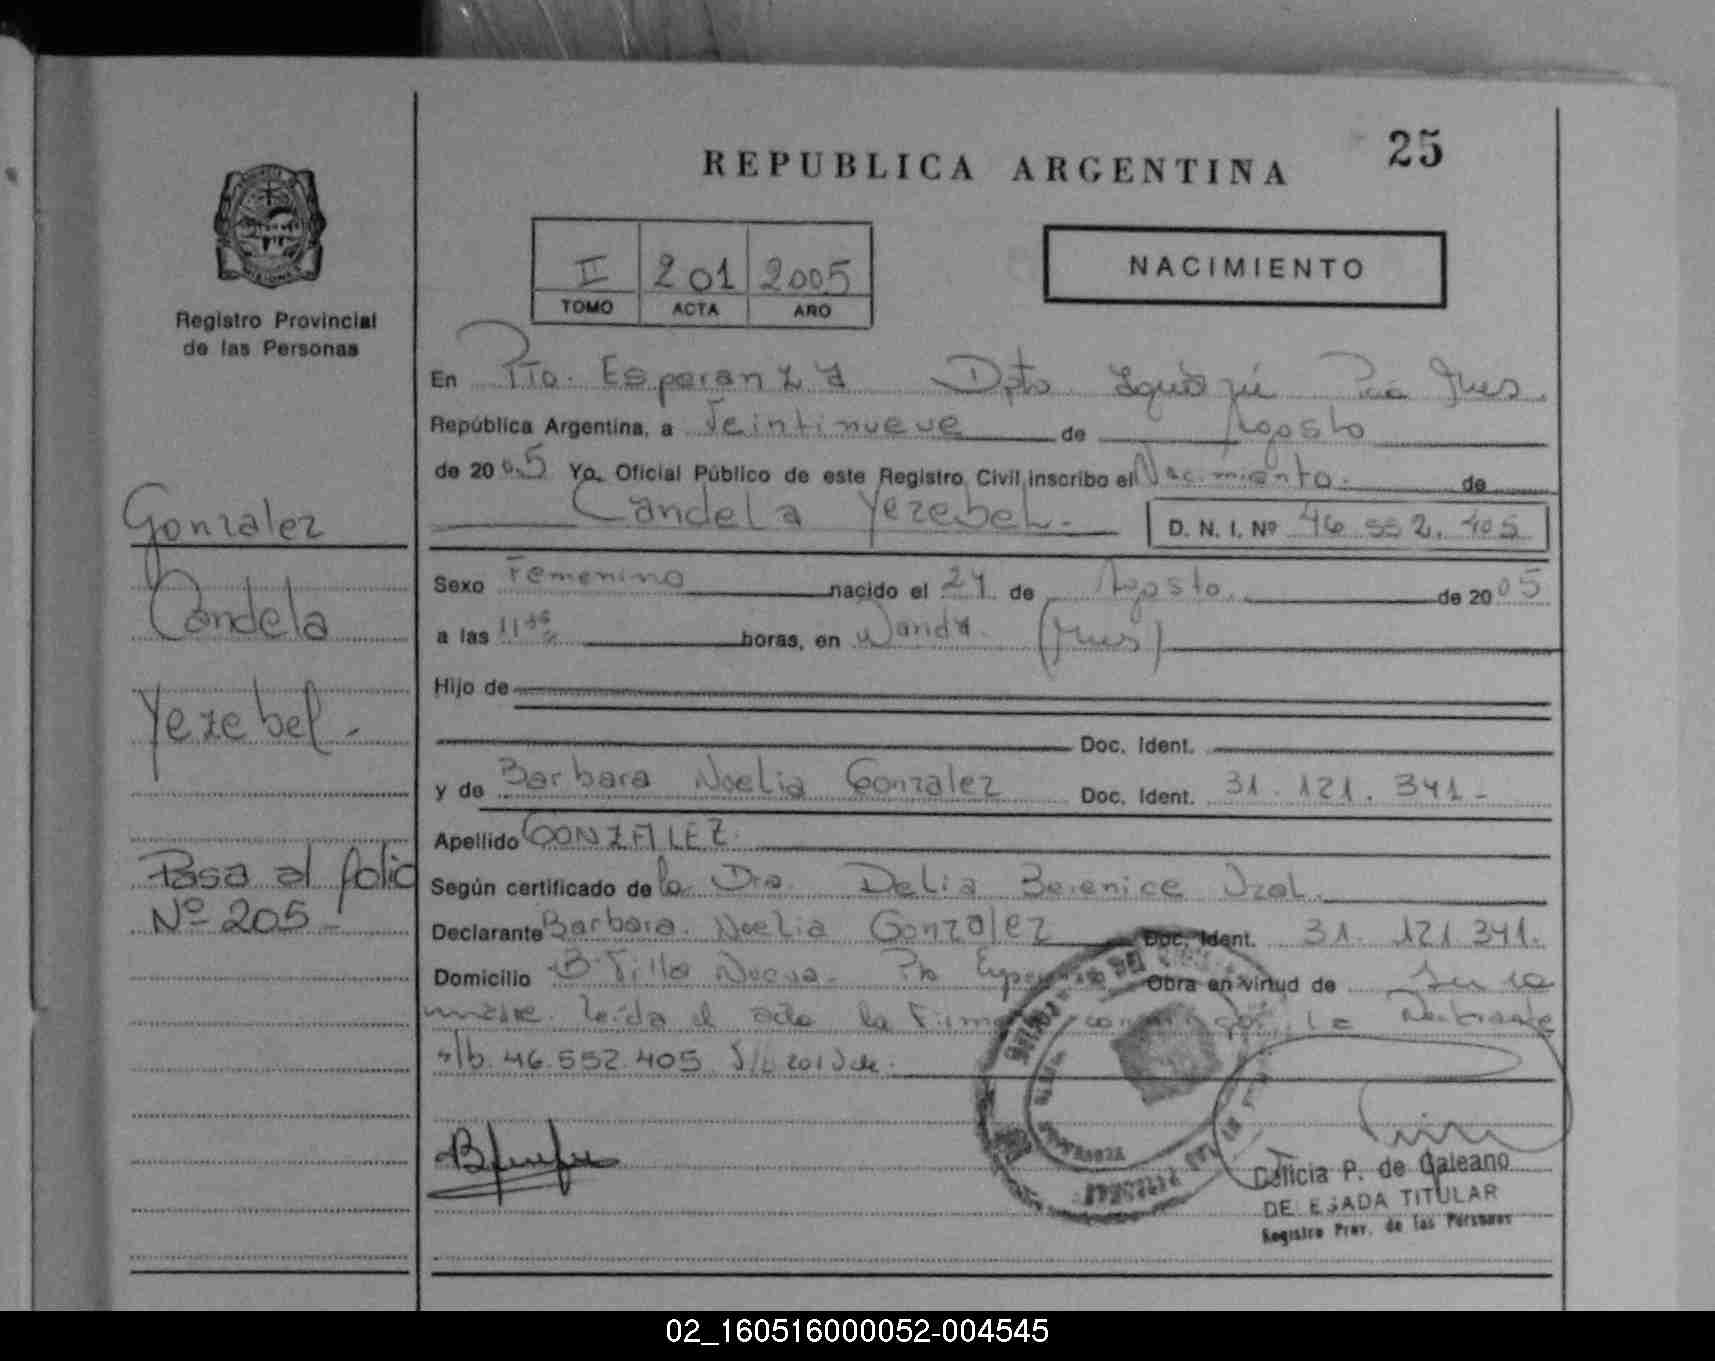 25
REPUBLICA ARGENTINA
NACIMIENTO
II 201 2005
TOMO ACTA AÑO
Registro Provincial
de las Personas
En Pto. Esperanza Dpto Iguazú Mnes.
República Argentina, a Veintinueve de Agosto
de 2005 Yo, Oficial Público de este Registro Civil, inscribo el Nacimiento. de
Candela Yezebel.- D. N. I. Nº 46.552.405
Sexo Femenino nacido el 24 de Agosto de 2005
a las 11 horas, en Wanda. (Mnes)
Hijo de
Doc. Ident.
y de Barbara Noelia Gonzalez Doc. Ident. 31.121.341-
Apellido GONZALEZ.
Según certificado de la Dra. Delia Berenice
Declarante Barbara Noelia Gonzalez Doc. Ident. 31.121.341.
Domicilio Bº Villa Nueva- Pto Obra en virtud de Ser la
madre. leída el acta la Firma
46.552.405
Gonzalez
Candela
Yezebel.-
Pasa al folio
Nº 205-
P. de Galeano
DELEGADA TITULAR
Registro Prov. de las Personas
02_160516000052-004545